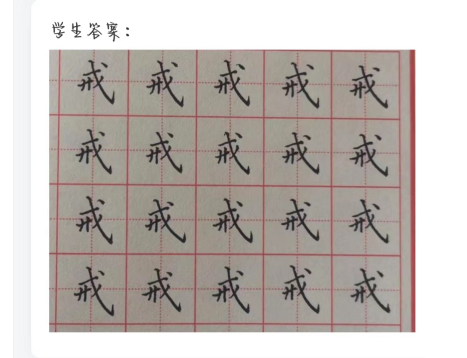 学生答案：
戒 戒 戒 戒 戒
戒 戒 戒 戒 戒
戒 戒 戒 戒 戒
戒 戒 戒 戒 戒